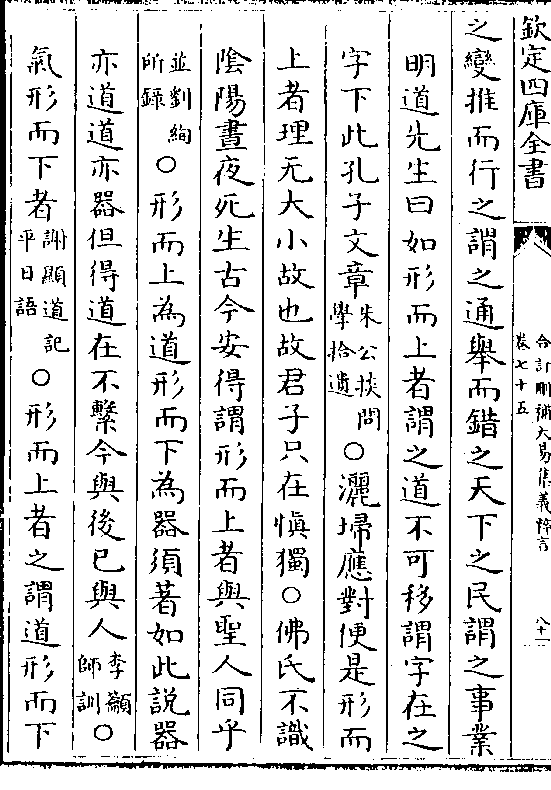 欽定四庫全書
合訂刪補大易集義粹言
卷七十五
八十一
之變推而行之謂之通舉而錯之天下之民謂之事業
明道先生曰如形而上者謂之道不可移謂字在之
字下此孔子文章朱公掞問學拾遺○灑埽應對便是形而
上者理无大小故也故君子只在慎獨○佛氏不識
陰陽晝夜死生古今安得謂形而上者與聖人同乎
並劉絢所録○形而上為道形而下為器須著如此説器
亦道道亦器但得道在不繫今與後已與人李籲師訓○
氣形而下者謝顯道記平日語○形而上者之謂道形而下